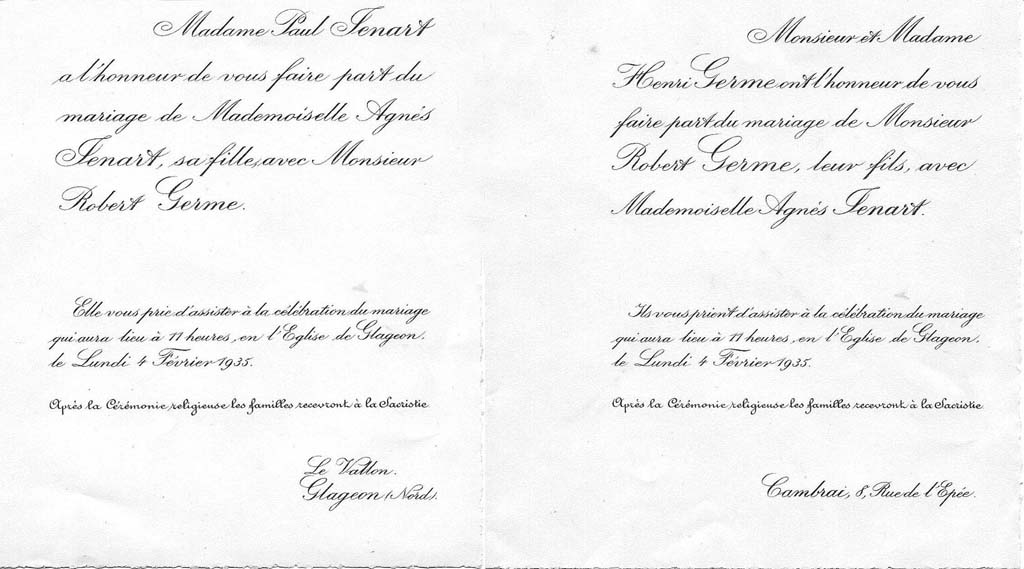 Madame Paul Fenart
a l'honneur de vous faire part du
mariage de Mademoiselle Agnés
Fenart, sa fille, avec Monsieur
Robert Germe.
Elle vous prie d'assister à la célébration du mariage
qui aura lieu à 11 heures, en l'Eglise de Glageon.
le Lundi 4 Février 1935.
Après la Cérémonie religieuse les familles recevront à la Sacristie
Le Vallon.
Glageon (Nord).
Monsieur et Madame
Henri Germe ont l'honneur de vous
faire part du mariage de Monsieur
Robert Germe, leur fils, avec
Mademoiselle Agnés Fenart.
Ils vous prient d'assister à la célébration du mariage
qui aura lieu à 11 heures, en l'Eglise de Glageon.
le Lundi 4 Février 1935.
Après la Cérémonie religieuse les familles recevront à la Sacristie
Cambrai, 8, Rue de l'Epée.